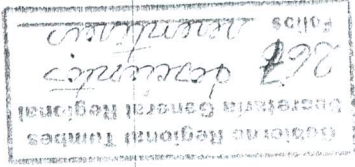 Gobierno Regional Tumbes
Secretaría General Regional
267 doscientos
Folios